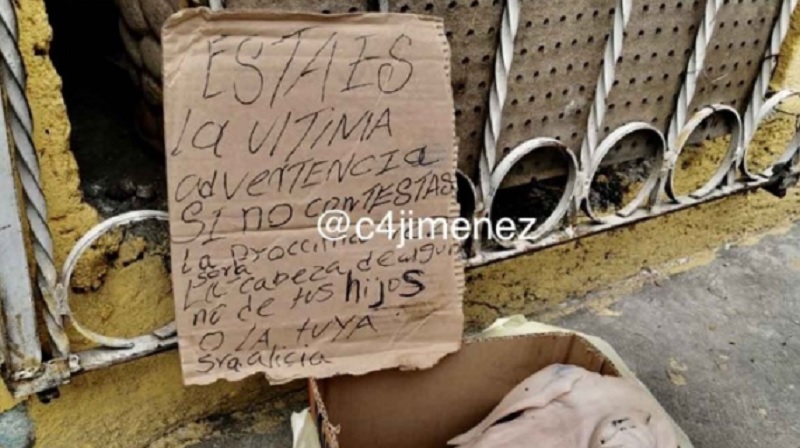 ESTA ES
la ULTIMA
adVERTENCIA
SI NO CONTESTAS
LA PROCCIMA
sera
LA CABEZA de algu
no de tus hijos
O LA TUYA
sra alicia
@c4jimenez